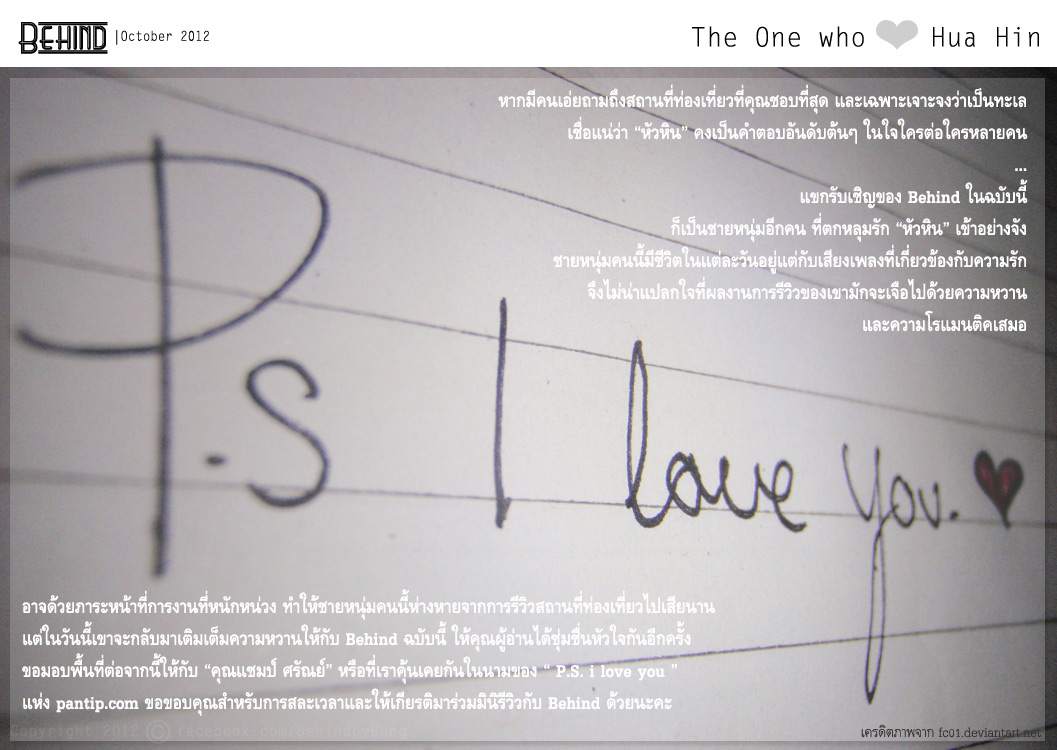 BEHIND |October 2012
The One who ❤ Hua Hin
หากมีคนเอ่ยถามถึงสถานที่ท่องเที่ยวที่คุณชอบที่สุด และเฉพาะเจาะจงว่าเป็นทะเล
เชื่อแน่ว่า “หัวหิน” คงเป็นคำตอบอันดับต้นๆ ในใจใครต่อใครหลายคน
...
แขกรับเชิญของ Behind ในฉบับนี้
ก็เป็นชายหนุ่มอีกคน ที่ตกหลุมรัก “หัวหิน” เข้าอย่างจัง
ชายหนุ่มคนนี้มีชีวิตในแต่ละวันอยู่แต่กับเสียงเพลงที่เกี่ยวข้องกับความรัก
จึงไม่น่าแปลกใจที่ผลงานการรีวิวของเขามักจะเจือไปด้วยความหวาน
และความโรแมนติคเสมอ
P.s I love you. ♥
อาจด้วยภาระหน้าที่การงานที่หนักหน่วง ทำให้ชายหนุ่มคนนี้ห่างหายจากการรีวิวสถานที่ท่องเที่ยวไปเสียนาน
แต่ในวันนี้เขาจะกลับมาเติมเต็มความหวานให้กับ Behind ฉบับนี้ ให้คุณผู้อ่านได้ชุ่มชื่นหัวใจกันอีกครั้ง
ขอมอบพื้นที่ต่อจากนี้ให้กับ “คุณแชมป์ ศรัณย์” หรือที่เราคุ้นเคยกันในนามของ “ P.S. i love you ”
แห่ง pantip.com ขอขอบคุณสำหรับการสละเวลาและให้เกียรติมาร่วมมินิรีวิวกับ Behind ด้วยนะคะ
Copyright 2012 © facebook.com/
เครดิตภาพจาก fc01.deviantart.net